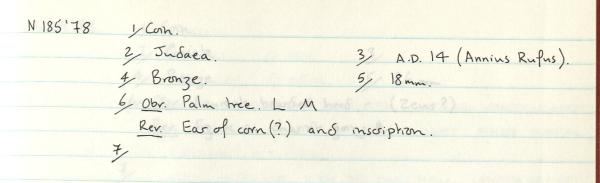 N 185'78 1/ Coin.
2/ Judaea. 3/ A.D. 14 (Annius Rufus).
4/ Bronze. 5/ 18mm.
6/ Obv. Palm tree. L M
Rev. Ear of corn (?) and inscription.
7/